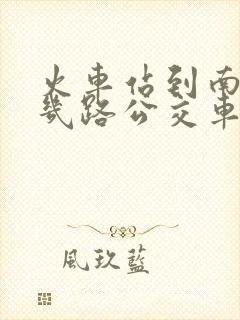 火車佔到南
幾路公交車
風玖藍